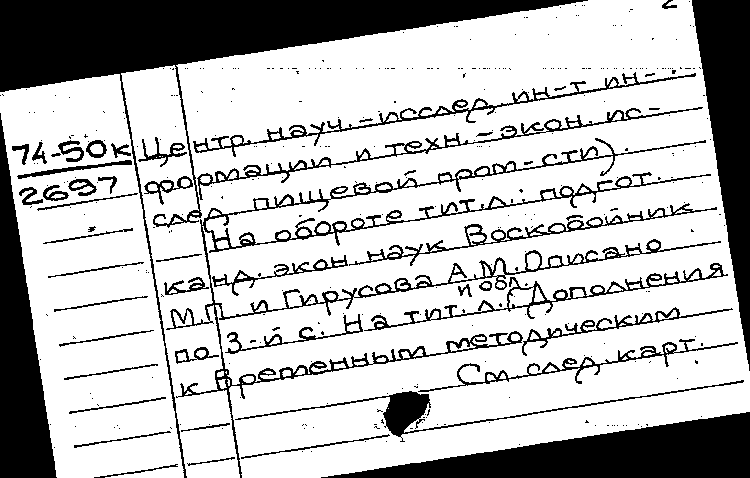 2
74-50к Центр. науч.-исслед. ин-т ин-
2697 формации и техн.-экон. ис-
след. пищевой пром-сти).
На обороте тит.л.: подгот.
канд. экон. наук Воскобойник
М.П. и Гирусова А.М. Описано
по 3-й с. На тит. и обл. л.: Дополнения
к Временным методическим
См. след. карт.